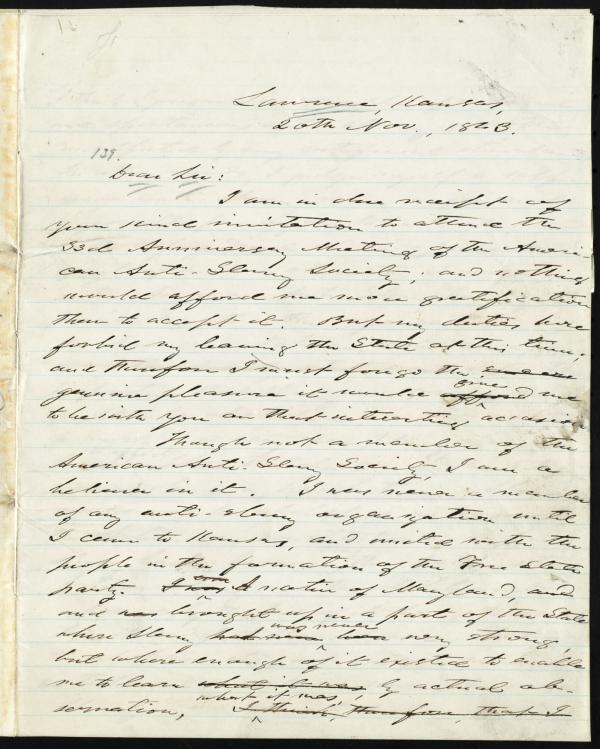 139.
Lawrence, Kansas,
20th Nov., 1863.
Dear Sir:
I am in due receipt of
your kind invitation to attend the
33d Anniversary Meeting of the Ameri-
can Anti-Slavery Society, and nothing
would afford me more gratification
than to accept it. But my duties here
forbid my leaving the State at this time,
and therefore I must forego the
give
genuine pleasure it would afford me
to be with you on that interesting occasion.
Though not a member of the
American Anti-Slavery Society, I am a
believer in it. I was never a member
of any anti-slavery organization until
I came to Kansas, and united with the
people in the formation of the Free State
party. I was a native of Maryland, and
and was brought up in a part of the State
was never
where Slavery had never been very strong,
but where enough of it existed to enable
me to learn what it was by actual ob-
what it was,
servation, I think, therefore, that I